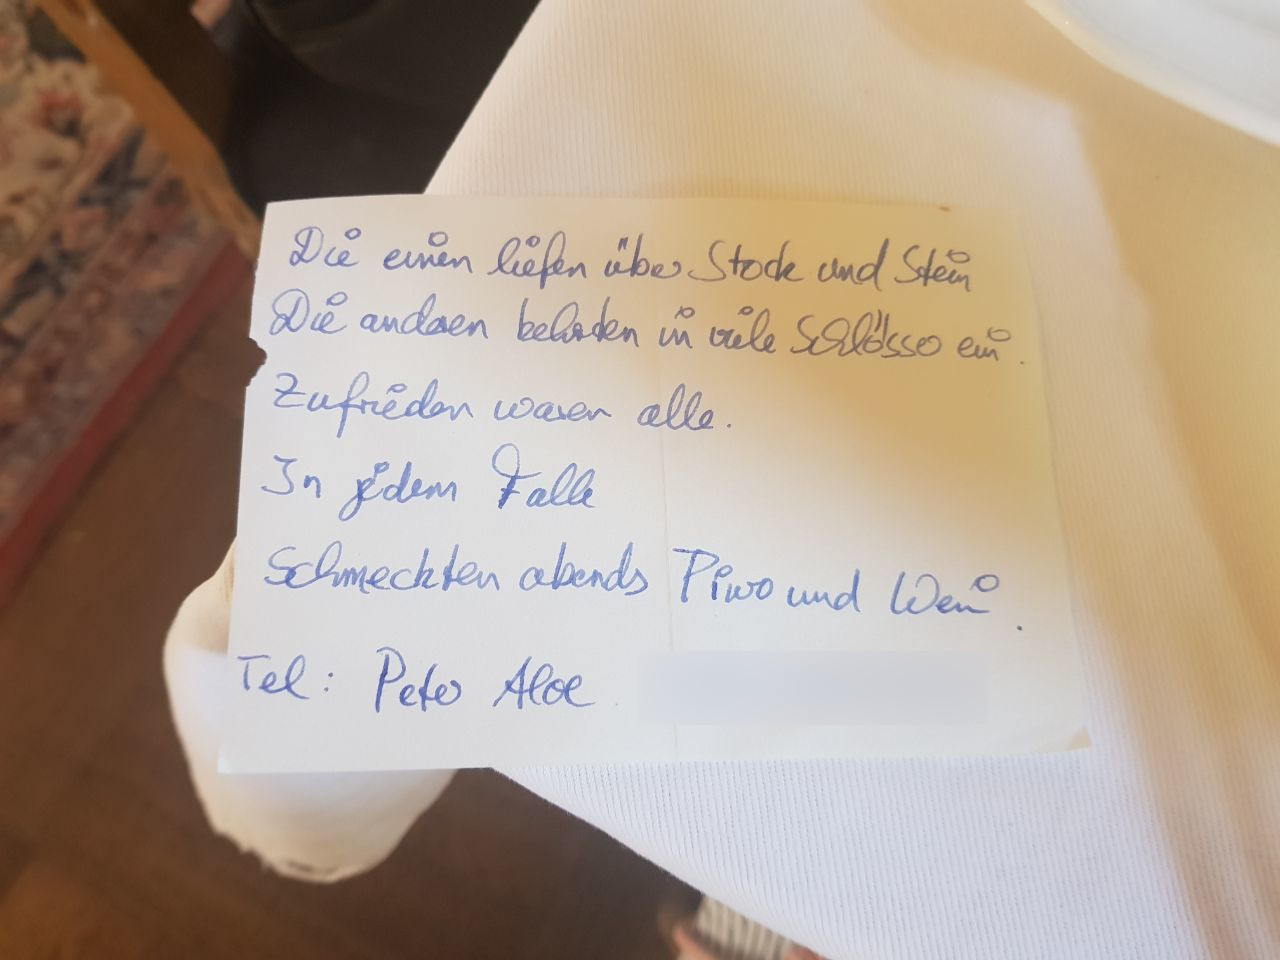 Die einen liefen über Stock und Stein
Die anderen kehrten in viele Schlösser ein.
Zufrieden waren alle.
In jedem Falle
Schmeckten abends Piwo und Wein.
Tel: Peter Aloe